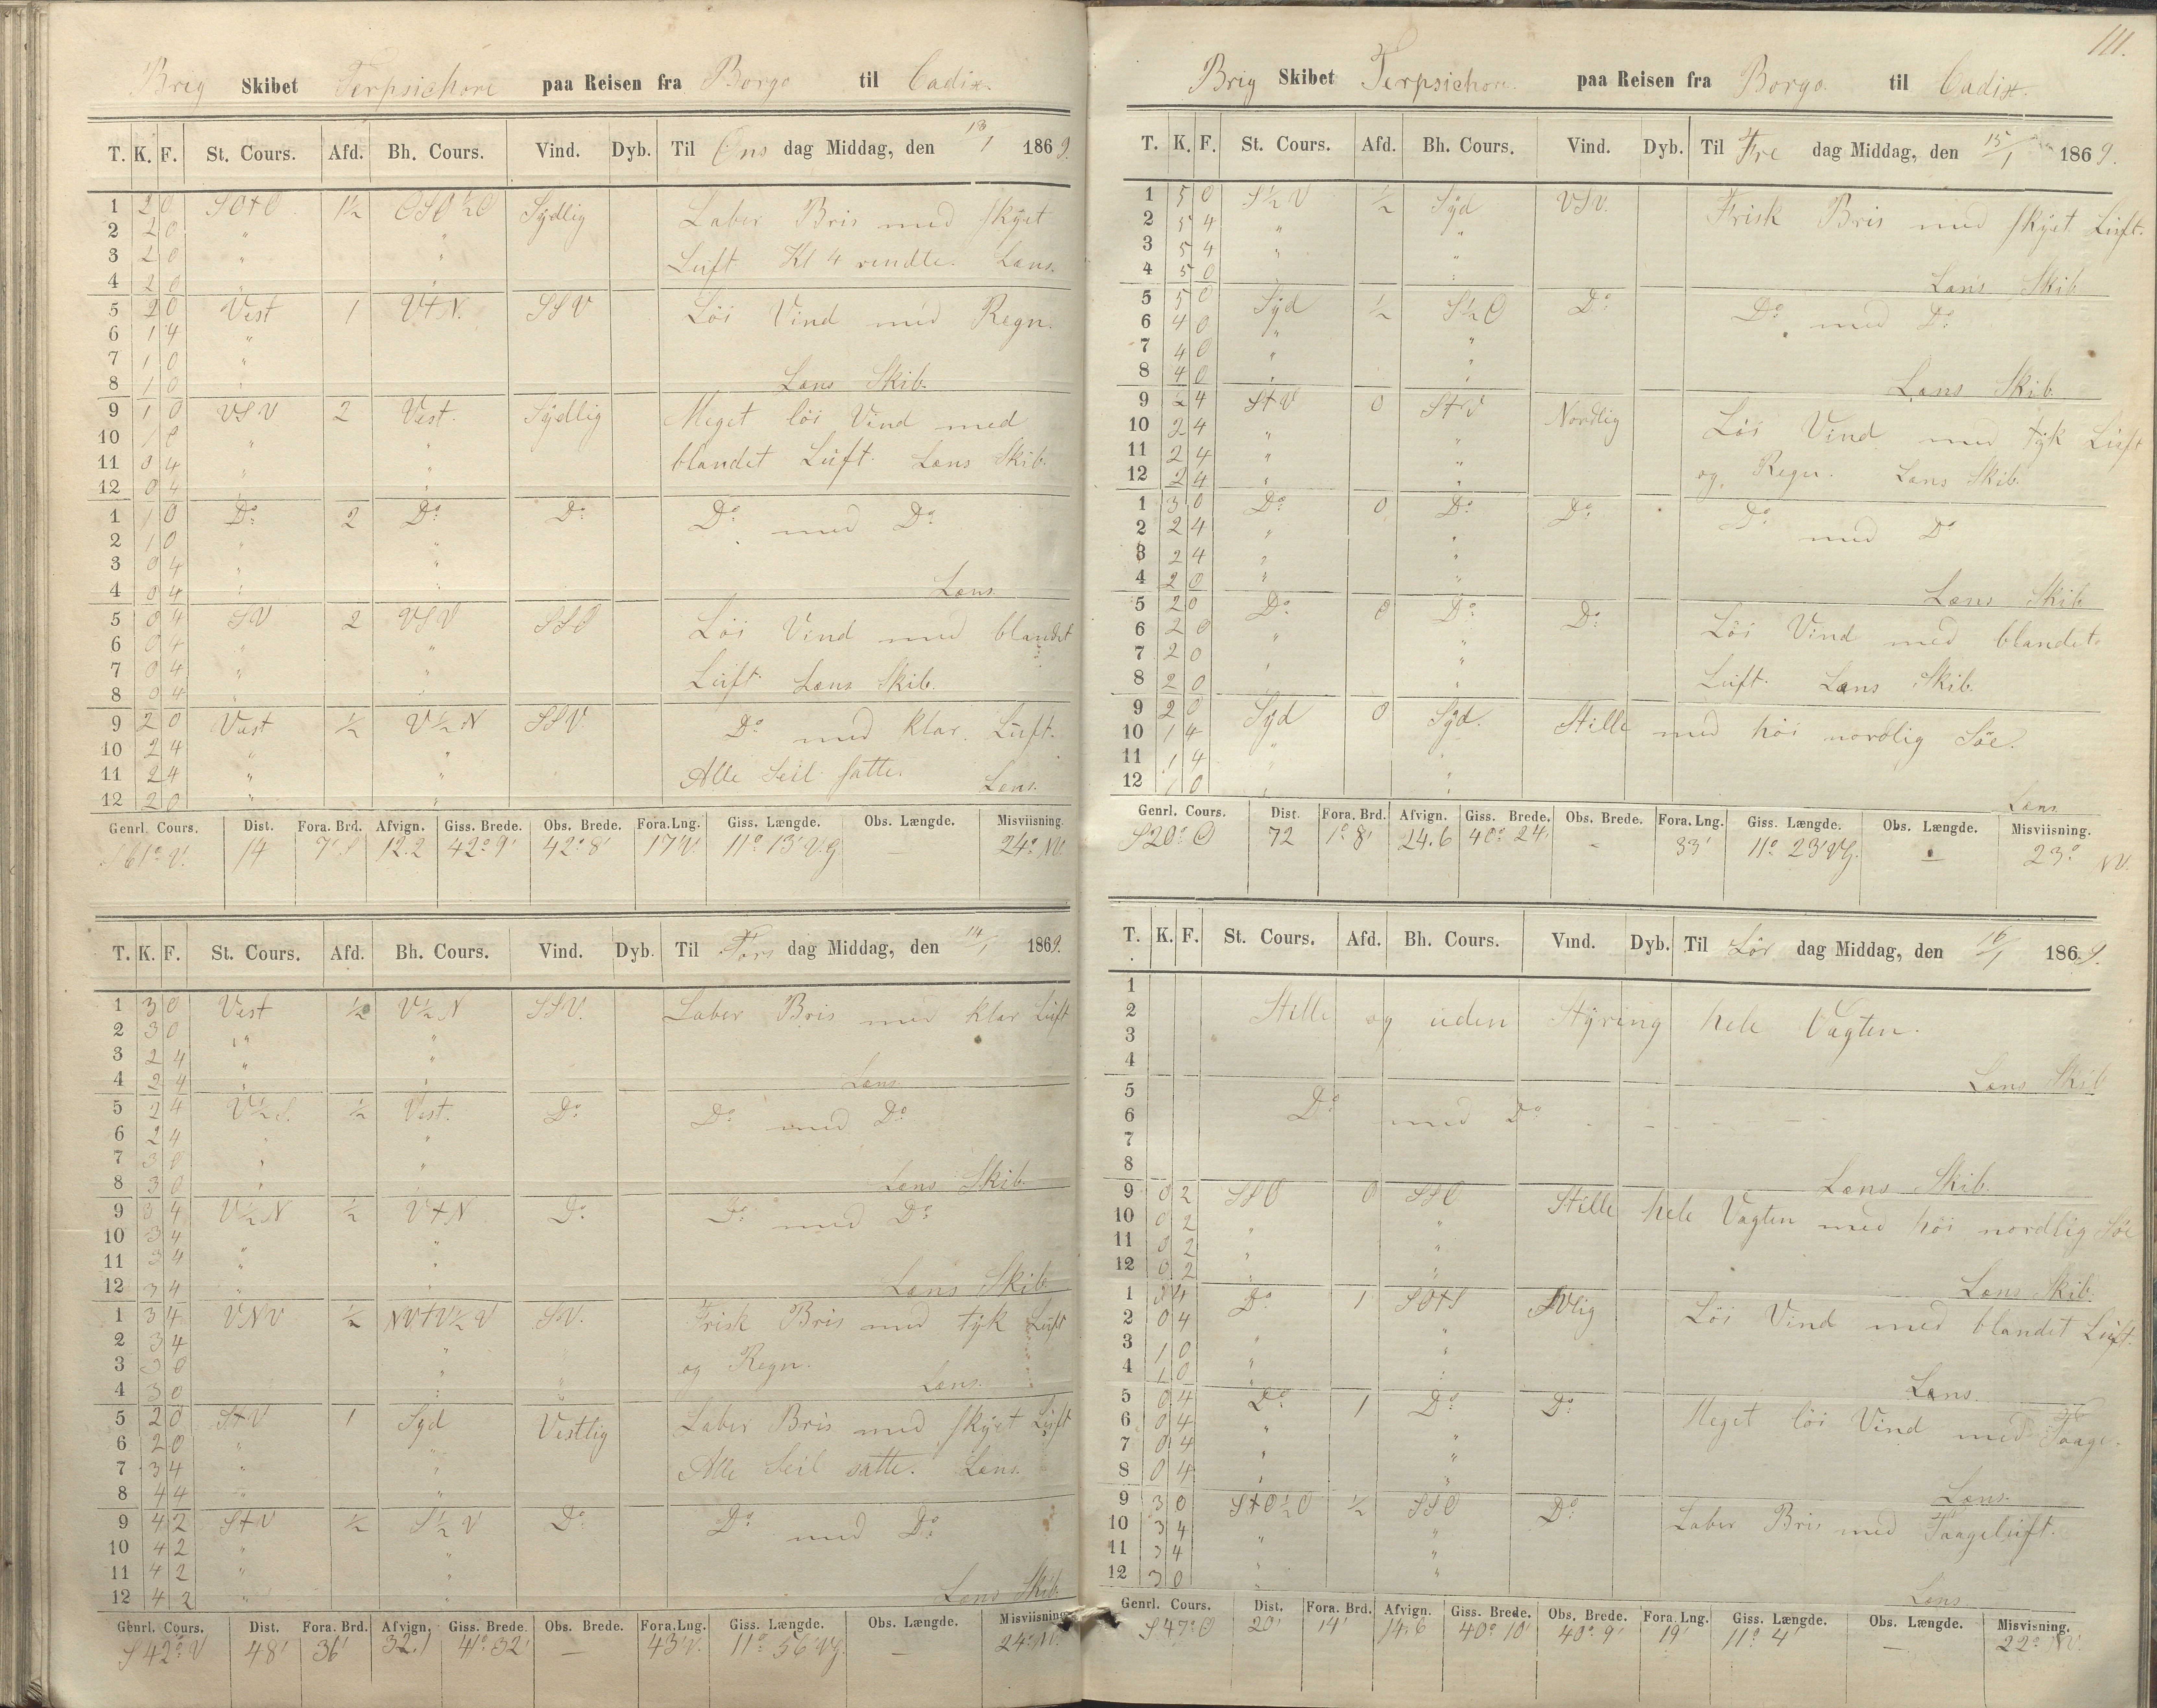 Brig Skibet Terpsichore paa Reisen fra Borgo til Cadix.
T. K. F. St. Cours. Afd. Bh. Cours. Vind. Dyb. Til Ons dag Middag, den 13/1 1869.
1 2 0 SO+O 1½ OSO½O Sÿdlig Laber Bris med skÿet
2 2 0 " "
3 2 0 " " Lúft Kl 4 vendte. Læns.
4 2 0 " "
5 2 0 Vest 1 V+N. SSV Löi Vind med Regn.
6 1 4 "
7 1 0 "
8 1 0 " Læns Skib.
9 1 0 VSV 2 Vest. Sÿdlig Meget löi Vind med
10 1 0 " "
11 0 4 " " blandet Lúft. Læns Skib.
12 0 4 " "
1 1 0 Do 2 Do Do Do med Do
2 1 0 " "
3 0 4 " "
4 0 4 " " Læns
5 0 4 SV 2 VSV SSO Löi Vind med blandet
6 0 4 " "
7 0 4 " " Lúft. Læns Skib.
8 0 4 " "
9 2 0 Vest ½ V½N SSV. Do med klar Lúft.
10 2 4 " "
11 2 4 " " Alle Seil satte. Læns.
12 2 0 " "
Genrl. Cours. Dist. Fora. Brd. Afvign. Giss. Brede. Obs. Brede. Fora. Lng. Giss. Længde. Obs. Længde. Misviisning.
S61°V. 14 7'S 12.2 42°9' 42°8' 17'V. 11°13'V.G 24°NV.
T. K. F. St. Cours. Afd. Bh. Cours. Vind. Dyb. Til Tors dag Middag, den 14/1 1869.
1 3 0 Vest ½ V½N SSV. Laber Bris med klar Lúft
2 3 0 " "
3 2 4 " "
4 2 4 " " Læns
5 2 4 V½S. ½ Vest. Do Do med Do
6 2 4 " "
7 3 0 " "
8 3 0 " " Læns Skib.
9 3 4 V½N ½ V+N Do Do med Do
10 3 4 " "
11 3 4 " "
12 3 4 " " Læns Skib
1 3 4 VNV ½ NV+V½V SV. Frisk Bris med tÿk Lúft
2 3 4 "
3 3 0 " " og Regn.
4 3 0 " " Læns.
5 2 0 S+V 1 Syd Vestlig Laber Bris med skÿet Lúft
6 2 0 " "
7 3 4 " " Alle Seil satte. Læns.
8 4 4 " "
9 4 2 S+V ½ S½V Do Do med Do
10 4 2 " "
11 4 2 " "
12 4 2 " " Læns Skib
Genrl. Cours. Dist. Fora. Brd. Afvign. Giss. Brede. Obs. Brede. Fora. Lng. Giss. Længde. Obs. Længde. Misviisning.
S42°V 48' 36' 32.1 41°32' — 43'V. 11°56'VG. — 24°NV.
111.
Brig Skibet Terpsichore. paa Reisen fra Borgo. til Cadix.
T. K. F. St. Cours. Afd. Bh. Cours. Vind. Dyb. Til Fre dag Middag, den 15/1 1869.
1 5 0 S½V ½ Sÿd VSV. Frisk Bris med skÿet Lúft.
2 5 4 " "
3 5 4 " "
4 5 0 " " Læns Skib
5 5 0 Sÿd ½ S½O Do Do med Do
6 4 0 "
7 4 0 " "
8 4 0 " " Læns Skib
9 2 4 S+V 0 S+V Nordlig Löi Vind med tÿk Lúft
10 2 4 " "
11 2 4 " " og Regn. Læns Skib.
12 2 4 " "
1 3 0 Do 0 Do Do Do med Do
2 2 4 " "
3 2 4 " "
4 2 0 " " Læns Skib
5 2 0 Do 0 Do Do Löi Vind med blandet
6 2 0 " "
7 2 0 " " Lúft. Læns Skib.
8 2 0 " "
9 2 0 Sÿd 0 Sÿd. Stille med höi nordlig Söe.
10 1 4 "
11 1 4 " "
12 1 0 " " Læns
Genrl. Cours. Dist. Fora. Brd. Afvign. Giss. Brede. Obs. Brede. Fora. Lng. Giss. Længde. Obs. Længde. Misviisning.
S20°O 72 1°8' 24.6 40°24' — 33' 11°23'VG. — 23° NV.
T. K. F. St. Cours. Afd. Bh. Cours. Vind. Dyb. Til Lör dag Middag, den 16/1 1869.
1
2 Stille og uden Stÿring hele Vagten.
3
4 Læns Skib
5
6 Do med Do
7
8 Læns Skib.
9 0 2 SSO 0 SSO Stille hele Vagten med höi nordlig Söe
10 0 2 " "
11 0 2 " "
12 0 2 " " Læns Skib.
1 0 4 Do 1 SO+S SVlig Löi Vind med blandet Lúft.
2 0 4 " "
3 1 0 " "
4 1 0 " " Læns.
5 0 4 Do 1 Do Do Meget löi Vind med Taage.
6 0 4 " "
7 0 4 " "
8 0 4 " " Læns.
9 3 0 S+O½O ½ SSO Do Laber Bris med Taagelúft.
10 3 4 " "
11 3 4 " "
12 3 0 " Læns
Genrl. Cours. Dist. Fora. Brd. Afvign. Giss. Brede. Obs. Brede. Fora. Lng. Giss. Længde. Obs. Længde. Misvisning.
S47°O 20' 14' 14.6 40°10' 40°9' 19' 11°4' — 22°NV.